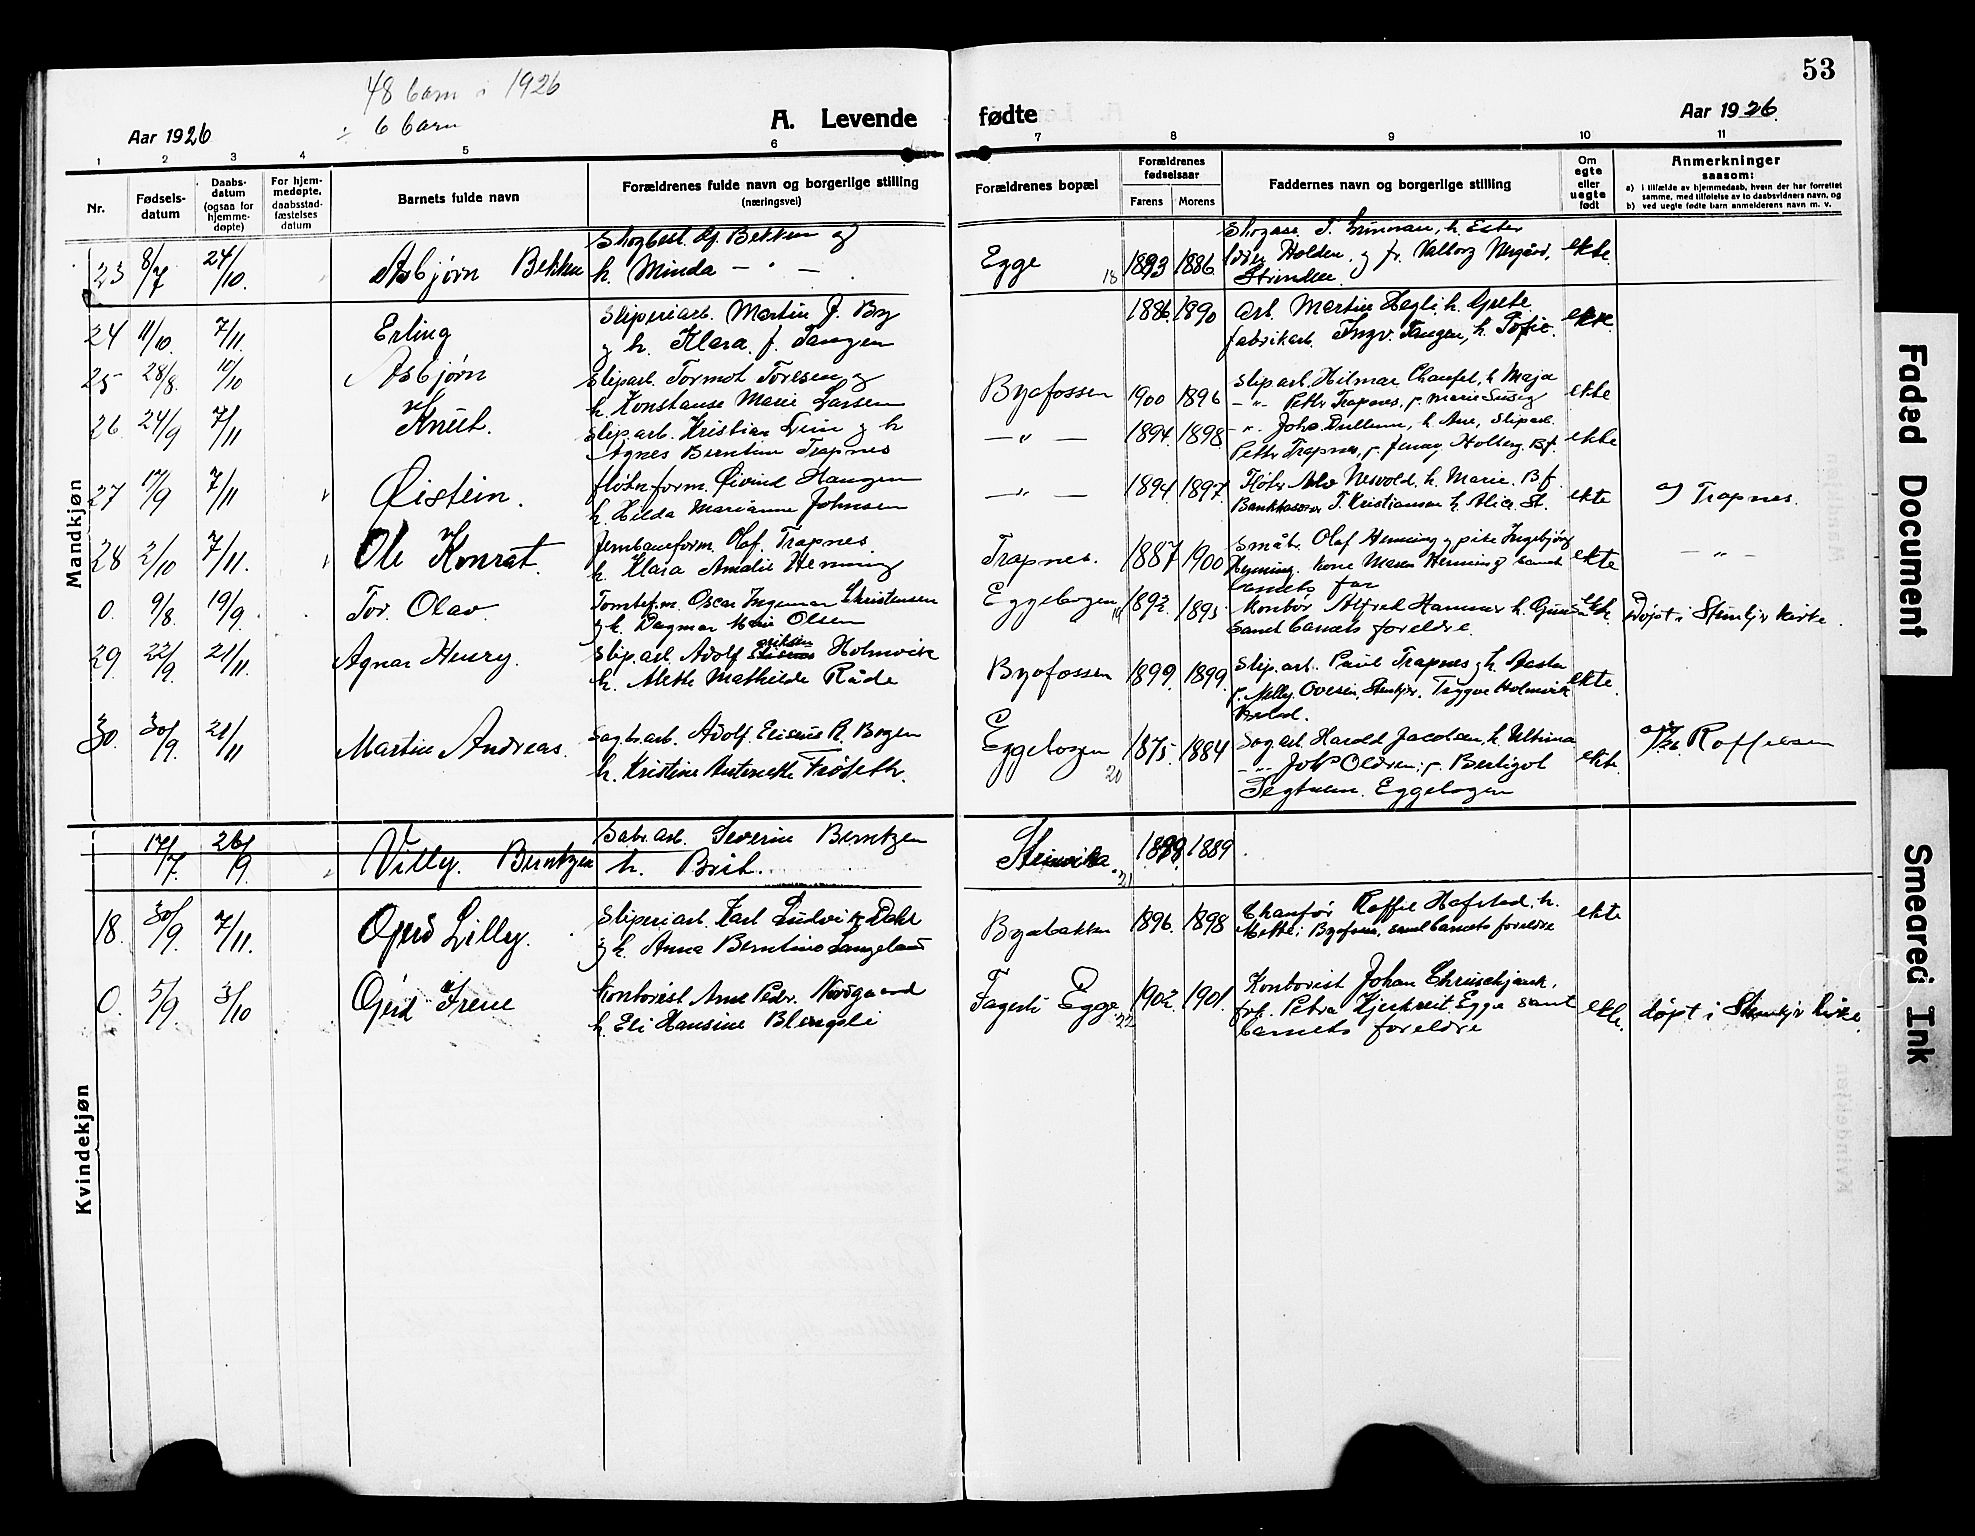 53
48 barn i 1926
÷ 6 barn
Aar 1926
A. Levende fødte
Aar 1926.
1 2 3 4 5 6 7 8 9 10 11
Nr.
Fødsels-
datum
Daabs-
datum
(ogsaa for
hjemme-
døpte)
For hjem-
medøpte,
daabsstad-
fæstelses
datum
Barnets fulde navn
Forældrenes fulde navn og borgerlige stilling
(næringsvei)
Forældrenes bopæl
Forældrenes
fødselsaar
Farens Morens
Faddernes navn og borgerlige stilling
Om
egte
eller
uegte
født
Anmerkninger
saasom:
a) i tilfælde av hjemmedaab, hvem der har forrettet
samme, med tilføielse av to daabsvidners navn, og
b) ved uegte fødte barn anmelderens navn m. v.
Mandkjøn
23 8/7 24/10. Asbjørn Bekken
Bekken og
h. Minda — " —
Egge 18 1893 1886
h. Ester
Holden, g fr. Valborg
ekte.
24 11/10. 7/11. Erling
Sliperiarb. Martin J. By
g h. Klara f. Tangen
1886. 1890
Arb. Martin Hegli h. Grete
fabrikarb. Ingv. Tangen, h. Tofie.
ekte
25 28/8. 10/10 Asbjørn
Sliparb. Tormot Toresen og
h. Konstanse Marie Larsen
Byafossen 1900 1896
Sliparb. Hilmar h. Maja
—"— Petter Trapnes, f. Marie
ekte
26. 24/9 7/11 Knut.
Slip.arb. Kristian Lein g h
Agnes Berntine Trapnes
— " — 1894. 1898.
—"— Johs. h. Ane, Sliparb.
Petter Trapnes, f. Jenny Holberg. Bf.
ekte
27 17/9 7/11 Øistein.
fløterform. Øivind Haugen
h. Hilda Marianne Johnsen
— " — 1894 1897.
Nesvold. h. Marie. Bf
T. Kristiansen h. Alice St.
ekte
a) Trapnes.
28 2/10 7/11. Ole Konrat.
Jernbaneform. Olaf. Trapnes.
h. Klara Amalie Henning
Trapnes. 1887 1900
Småbr. Olaf Henning g pike Ingebjørg
Henning. kone Maren Henning g samt
barnets far
ekte
— " —
0. 9/8. 19/9. Tor. Olav
Tomtef.m. Oscar Ingemar Christensen
g h. Dagmar Marie Olsen
Eggebogen 19 1892 1895
Kontor Alfred Hammer h.
samt barnets foreldre.
ekte.
Døpt i Stenkjer kirke.
29. 22/9. 21/11. Agnar Henry.
Slip.arb. Adolf Holmvik
h. Alette Mathilde Råde
Byafossen 1899. 1899.
Slip.arb. Paul Trapnes g h.
f. Nelly Ovesen, Stenkjer. Trygve Holmvik
ekte.
30. 30/9. 21/11 Martin Andreas.
Sag.b.arb. Adolf. Eliseus R. Bogen
h. Kristine Antonette Trøseth.
Eggebogen 20 1875. 1884
Sag.arb. Harald Jacobsen, h.
—"— f. Bertigot
Eggebogen
ekte.
17/7. 26/9. Villy. Berntzen
Severin Berntzen
h. Brit.
21 1889
Kvindekjøn
18. 30/9. 7/11. Gjerd Lilly.
Sliperiarb. Karl Ludvik Dahl
g h. Anna Berntine Langeland
Byabakken 1896. 1898
Chaufør Roffel Hafstad. h.
Mette; samt barnets foreldre
ekte
0. 5/9 3/10 Gerd Irene
Kontorist Arne Peder. Nordgaard
h. Eli Hansine
Fagerli Egge. 22 1902 1901.
Kontorist Johan
frk. Petra Egge samt
barnets foreldre
ekte.
døpt i Stenkjer kirke.
Faded Document
Smeared Ink